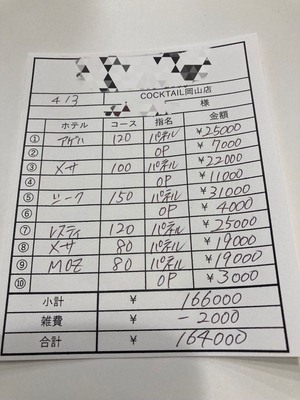 COCKTAIL岡山店
4/3 様
ホテル コース 指名 金額
① アゲハ 120 パネル ¥25000
② OP ¥7000
③ メサ 100 パネル ¥22000
④ OP ¥11000
⑤ シーク 150 パネル ¥31000
⑥ OP ¥4000
⑦ レスティ 120 パネル ¥25000
⑧ メサ 80 パネル ¥19000
⑨ MOZ 80 パネル ¥19000
⑩ OP ¥3000
小計 ¥ 166000
雑費 ¥ -2000
合計 ¥ 164000